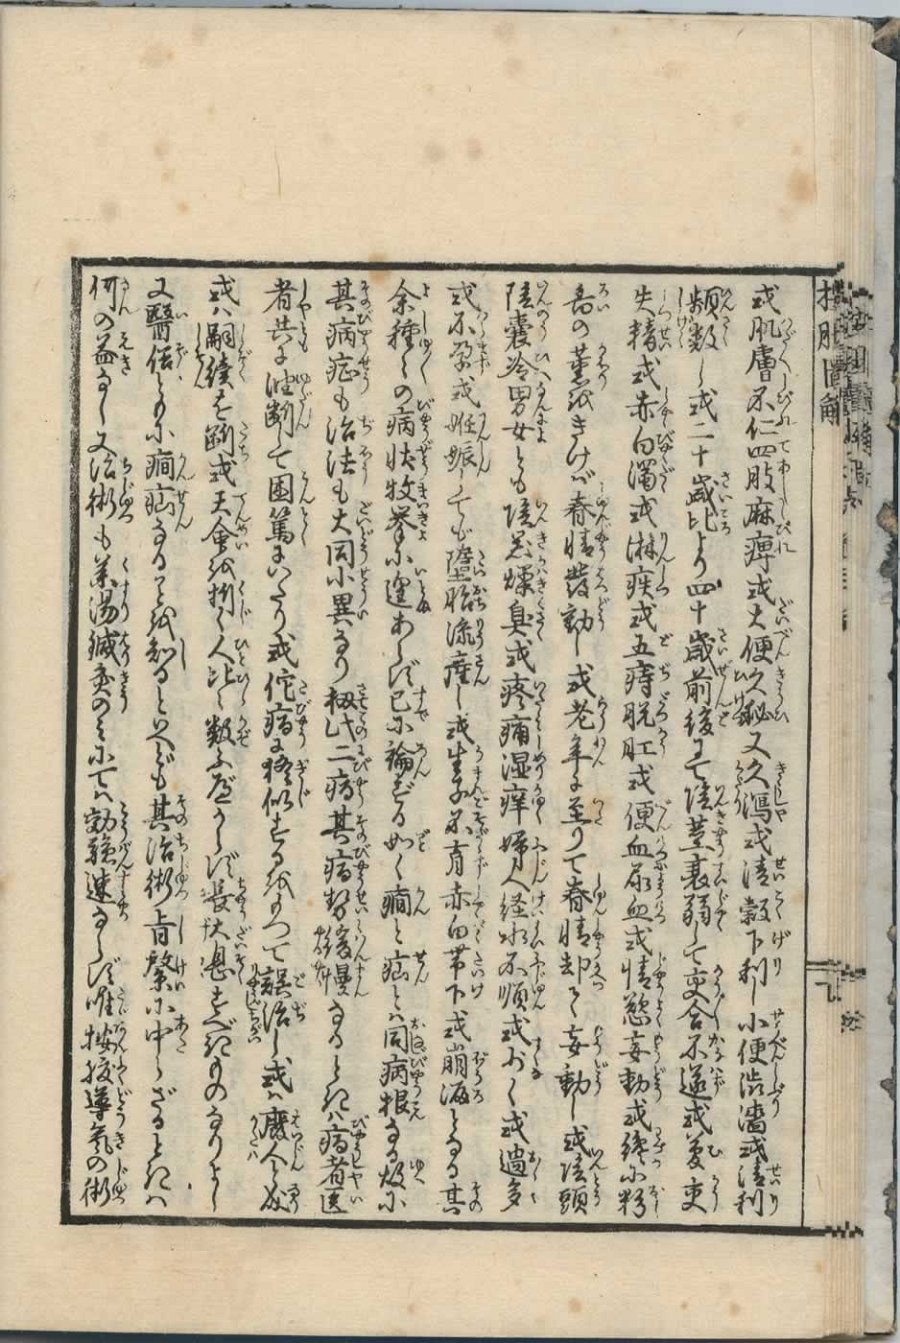 或肌膚不仁四肢麻痺或大便久秘又久瀉或清穀下利し小便渋濇或清利
頻数し或二十歳比より四十歳前後にて陰茎衰弱して交合不遂或夢交
失精或赤白濁或淋疾或五痔脱肛或便血尿血或情慾妄動或
の薫をきけバ春情發動し或老年に至りて春情却て妄動し或陰頭
陰嚢冷男女とも陰器燥臭或疼痛湿痒婦人経水不順或少く或過多
或不孕或妊娠しても墮胎流産し或生子不育赤白帯下或崩漏となる其
余種々の病状枚挙に遑あらず已に論ずる如く癇と疝とハ同病根なる故に
其病症も治法も大同小異なり扨此二病其病勢緩慢なるときハ病者医
者共に油断して困篤にいたり或佗病に疑似するをもつて誤治し或ハ廢人と成
或ハ嗣續を断或天命を損く人比々数ふ歎息すべきものなりよし
又醫俗ともに癇疝なることを知るといへども其治術肯綮に中らざるときハ
何の益なし又治術も薬湯鍼灸のミにてハ効驗速ならず唯按腹導氣の術